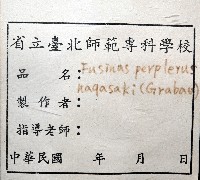 省立臺北師範專科學校
品名：Fusinus perplerus
nagasaki (Grabau)
製作者：
指導老師：
中華民國 年 月 日